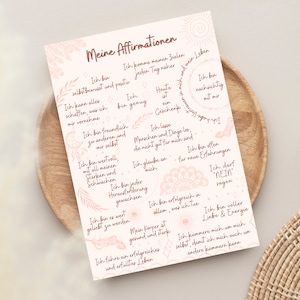 Meine Affirmationen
Ich bin
selbstbewusst und positiv
Ich komme meinen Zielen
jeden Tag näher
Ich kann alles
schaffen, was ich
mir vornehme
Ich bin
genug
Heute
ist ein
Geschenk
Ich bin
nachsichtig
mit mir
Ich bin freundlich
zu anderen und
mir selbst
Ich lasse
Menschen und Dinge los,
die nicht gut für mich sind
Ich bin wertvoll,
mit all meinen
Stärken und
Schwächen
Ich glaube an
mich
Ich bin offen
für neue Erfahrungen
Ich bin jeder
Herausforderung
gewachsen
Ich darf
"NEIN"
sagen
Ich bin es wert
geliebt zu werden
Ich bin erfolgreich in
allem, was ich tue
Ich bin voller
Liebe & Energie
Mein Körper ist
gesund und stark
Ich kümmere mich um mich
selbst, damit ich mich auch um
andere kümmern kann
Ich führe ein erfolgreiches
und erfülltes Leben